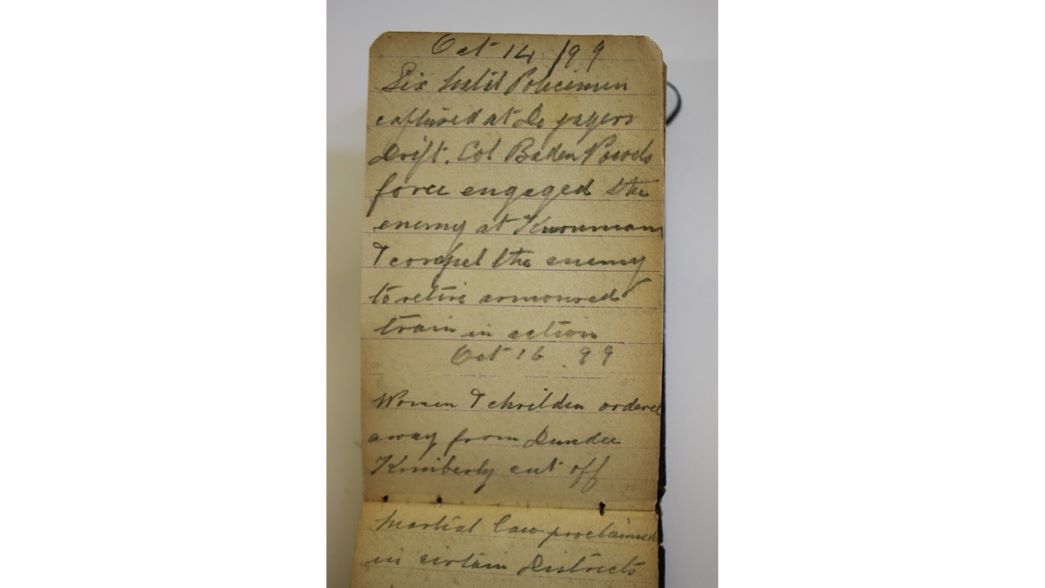 Oct 14 /99
Six Natil Policimen
captured at De Jagers
Drift. Col Baden Powels
force engaged the
enemy at
& compel the enemy
to retire armoured
train in action
Oct 16 . 99
Women & chrilden ordered
away from Dundee
Kimberly cut off
Martial Law proclaimed
in certain Districts